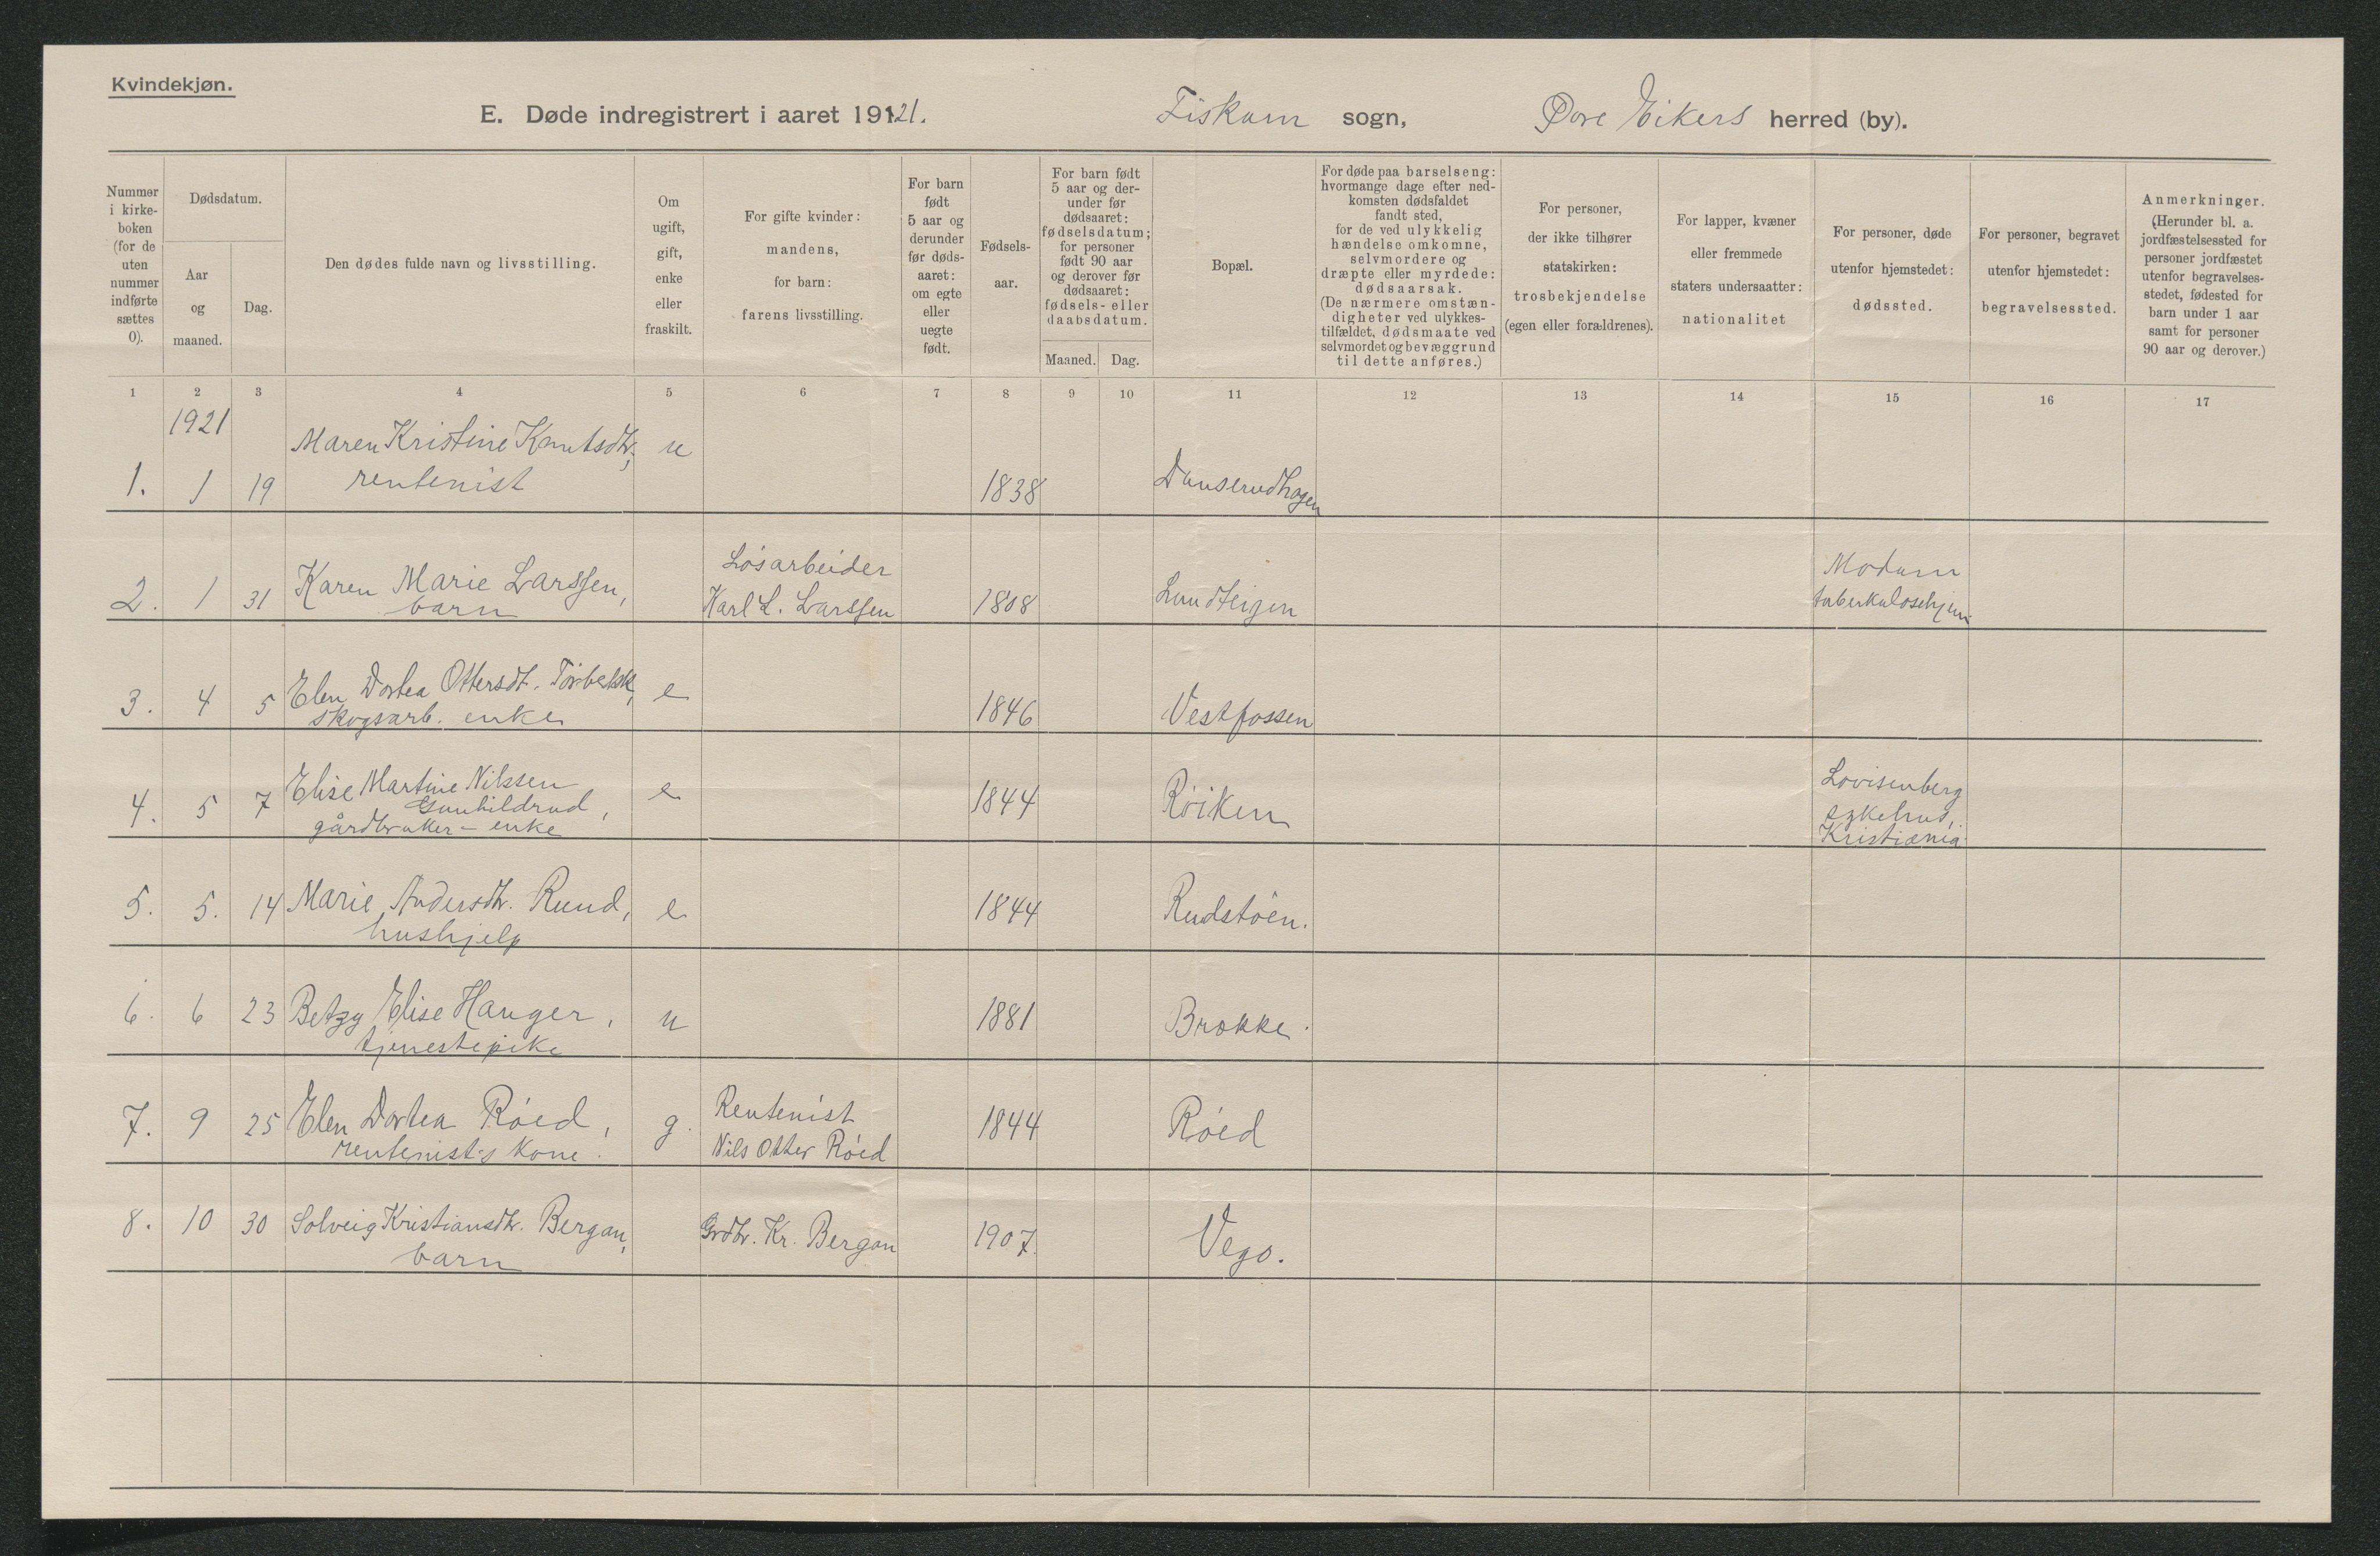 Kvindekjøn.
E. Døde indregistrert i aaret 19121. Fiskum sogn, Øvre Eikers herred (by).
Nummer i kirke- boken (for de uten nummer indførte sættes 0).
Dødsdatum.
Aar og maaned.
Dag.
Den dødes fulde navn og livsstilling.
Om ugift, gift, enke eller fraskilt.
For gifte kvinder: mandens, for barn: farens livsstilling.
For barn født 5 aar og derunder før døds- aaret: om egte eller uegte født.
Fødsels- aar.
For barn født 5 aar og der- under før dødsaaret: fødselsdatum; for personer født 90 aar og derover før dødsaaret: fødsels- eller daabsdatum.
Maaned. Dag.
Bopæl.
For døde paa barselseng: hvormange dage efter ned- komsten dødsfaldet fandt sted, for de ved ulykkelig hændelse omkomne, selvmordere og dræpte eller myrdede: dødsaarsak. (De nærmere omstæn- digheter ved ulykkes- tilfældet, dødsmaate ved selvmordet og bevæggrund til dette anføres.)
For personer, der ikke tilhører statskirken: trosbekjendelse (egen eller forældrenes).
For lapper, kvæner eller fremmede staters undersaatter: nationalitet
For personer, døde utenfor hjemstedet: dødssted.
For personer, begravet utenfor hjemstedet: begravelsessted.
Anmerkninger. (Herunder bl. a. jordfæstelsessted for personer jordfæstet utenfor begravelses- stedet, fødested for barn under 1 aar samt for personer 90 aar og derover.)
1 2 3 4 5 6 7 8 9 10 11 12 13 14 15 16 17
1921
1. 1 19 Maren Kristine Knutsdtr, rentenist u 1838 Dunserudhagen
2. 1 31 Karen Marie Larssen, barn Løsarbeider Karl L. Larssen 1808 Lundteigen Modum tuberkulosehjem
3. 4 5 Elen Dortea Ottersdt. skogsarb. enke e 1846 Vestfossen
4. 5 7 Elise Martine Nilssen Gunhildrud, gårdbruker - enke e 1844 Røiken Lovisenberg sykehus, Kristiania
5. 5. 14 Marie Andersdtr. Ruud, hushjelp e 1844 Rudstøen.
6. 6 23 Betzy Elise Hauger, tjenestepike u 1881 Brokke.
7. 9 25 Elen Dortea Røed, rentenist's kone. g. Rentenist Nils Otter Røed 1844 Røed
8. 10 30 Solveig Kristiansdtr. Bergan, barn Grdbr. Kr. Bergan 1907. Vego.